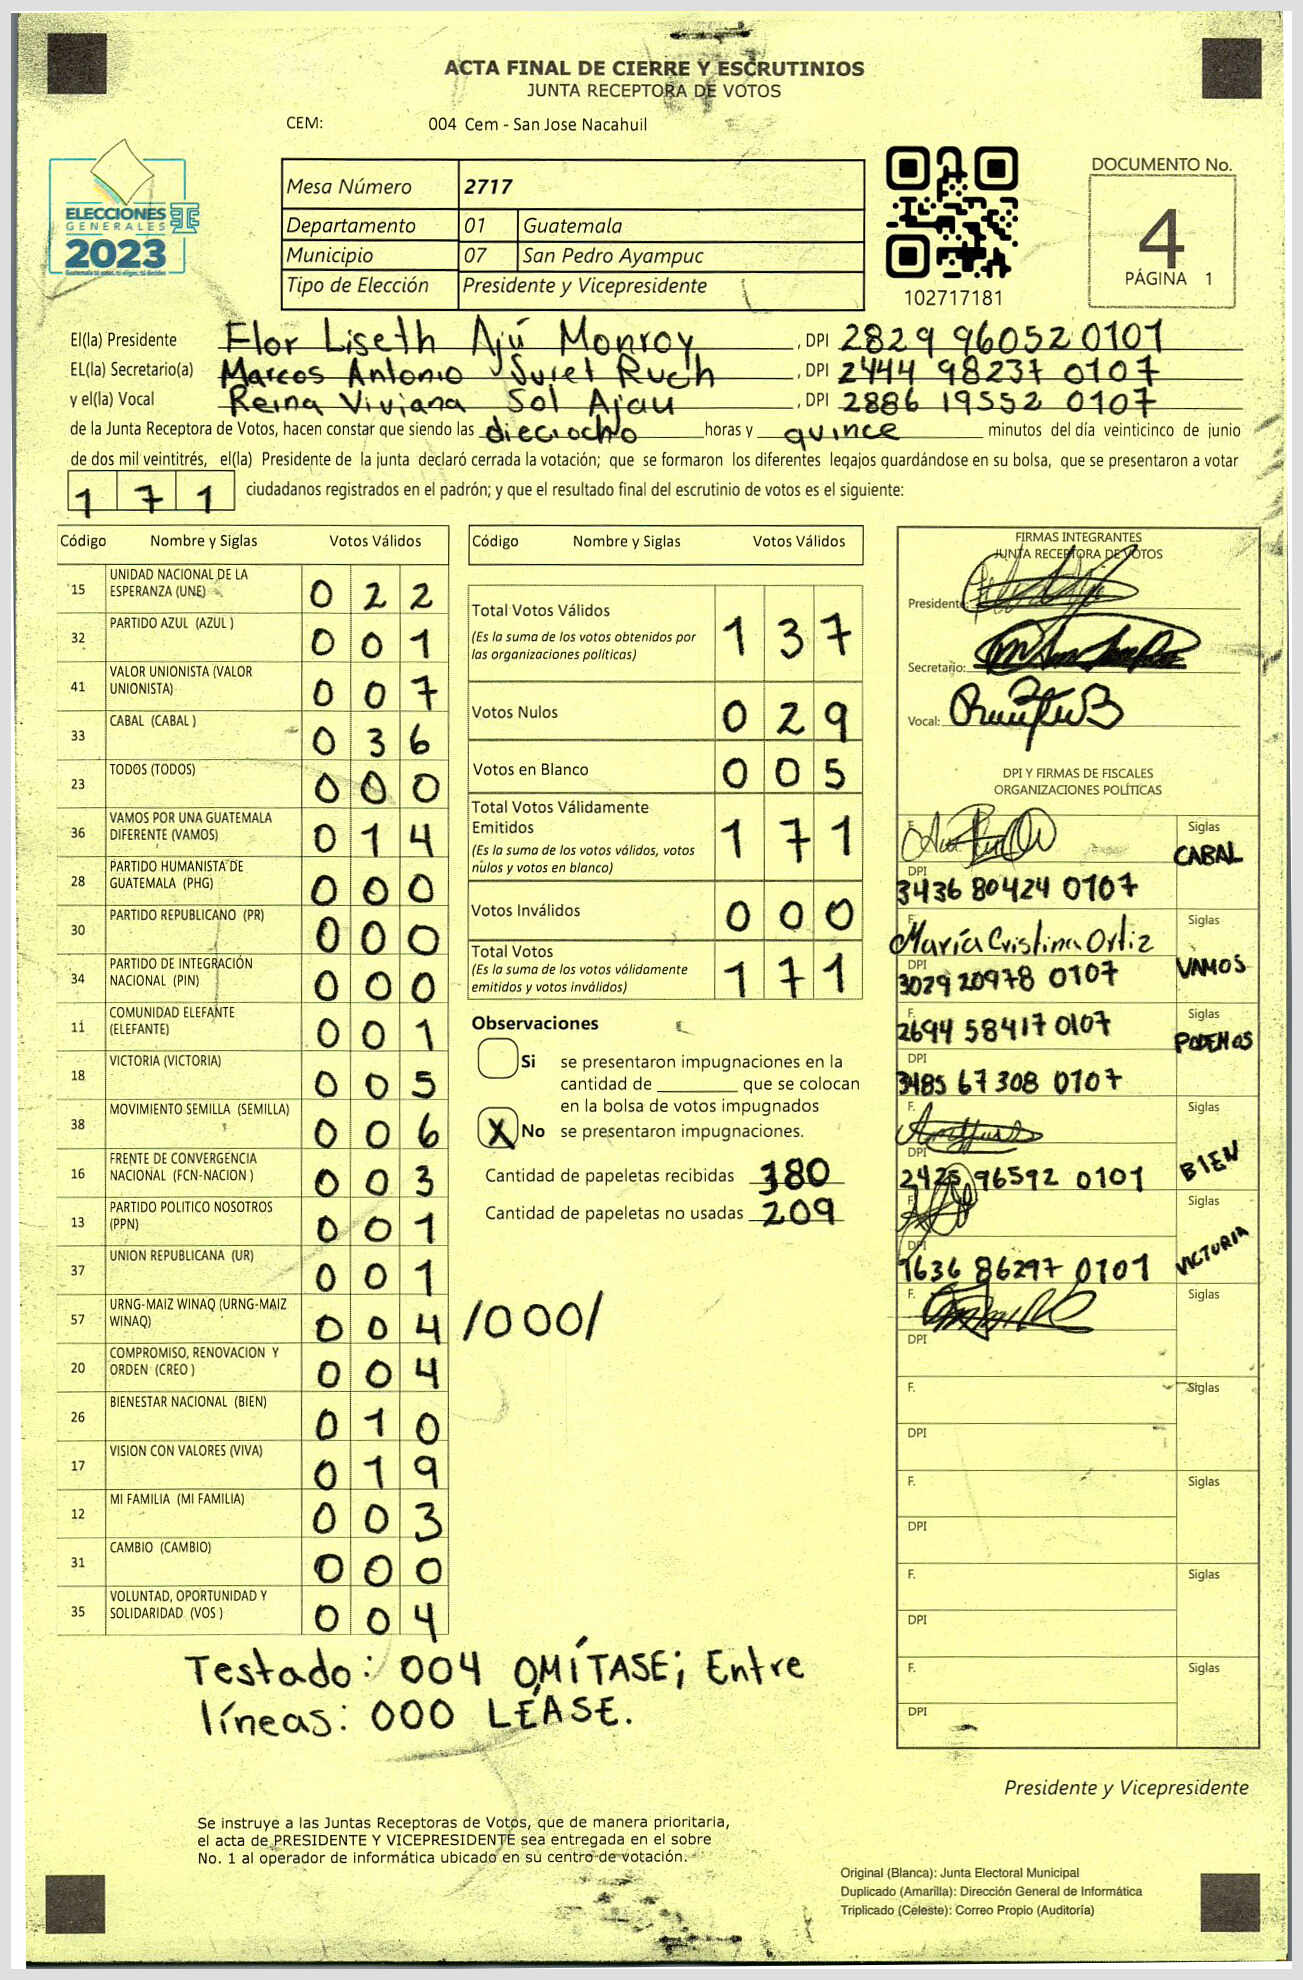 ACTA FINAL DE CIERRE Y ESCRUTINIOS
JUNTA RECEPTORA DE VOTOS
CEM: 004 Cem - San Jose Nacahuil
ELECCIONES
GENERALES
2023
Mesa Número 2717
Departamento 01 Guatemala
Municipio 07 San Pedro Ayampuc
Tipo de Elección Presidente y Vicepresidente
102717181
DOCUMENTO No.
4
PÁGINA 1
El(la) Presidente Flor Liseth Ajú Monroy, DPI 2829 96052 0101
EL(la) Secretario(a) Marcos Antonio Suret Ruch, DPI 2444 98237 0107
y el(la) Vocal Reina Viviana Sol Ajau, DPI 2886 19552 0107
de la Junta Receptora de Votos, hacen constar que siendo las dieciocho horas y quince minutos del día veinticinco de junio
de dos mil veintitrés, el(la) Presidente de la junta declaró cerrada la votación; que se formaron los diferentes legajos guardándose en su bolsa, que se presentaron a votar
1 7 1 ciudadanos registrados en el padrón; y que el resultado final del escrutinio de votos es el siguiente:
Código Nombre y Siglas Votos Válidos
15 UNIDAD NACIONAL DE LA ESPERANZA (UNE) 0 2 2
32 PARTIDO AZUL (AZUL ) 0 0 1
41 VALOR UNIONISTA (VALOR UNIONISTA) 0 0 7
33 CABAL (CABAL ) 0 3 6
23 TODOS (TODOS) 0 0 0
36 VAMOS POR UNA GUATEMALA DIFERENTE (VAMOS) 0 1 4
28 PARTIDO HUMANISTA DE GUATEMALA (PHG) 0 0 0
30 PARTIDO REPUBLICANO (PR) 0 0 0
34 PARTIDO DE INTEGRACIÓN NACIONAL (PIN) 0 0 0
11 COMUNIDAD ELEFANTE (ELEFANTE) 0 0 1
18 VICTORIA (VICTORIA) 0 0 5
38 MOVIMIENTO SEMILLA (SEMILLA) 0 0 6
16 FRENTE DE CONVERGENCIA NACIONAL (FCN-NACION ) 0 0 3
13 PARTIDO POLITICO NOSOTROS (PPN) 0 0 1
37 UNION REPUBLICANA (UR) 0 0 1
57 URNG-MAIZ WINAQ (URNG-MAIZ WINAQ) 0 0 4 /000/
20 COMPROMISO, RENOVACION Y ORDEN (CREO ) 0 0 4
26 BIENESTAR NACIONAL (BIEN) 0 1 0
17 VISION CON VALORES (VIVA) 0 1 9
12 MI FAMILIA (MI FAMILIA) 0 0 3
31 CAMBIO (CAMBIO) 0 0 0
35 VOLUNTAD, OPORTUNIDAD Y SOLIDARIDAD (VOS ) 0 0 4
Testado: 004 OMÍTASE; Entre
líneas: 000 LÉASE.
Código Nombre y Siglas Votos Válidos
Total Votos Válidos 1 3 7
(Es la suma de los votos obtenidos por
las organizaciones políticas)
Votos Nulos 0 2 9
Votos en Blanco 0 0 5
Total Votos Válidamente
Emitidos 1 7 1
(Es la suma de los votos válidos, votos
nulos y votos en blanco)
Votos Inválidos 0 0 0
Total Votos 1 7 1
(Es la suma de los votos válidamente
emitidos y votos inválidos)
Observaciones
Si se presentaron impugnaciones en la
cantidad de ________ que se colocan
en la bolsa de votos impugnados
X No se presentaron impugnaciones.
Cantidad de papeletas recibidas 380
Cantidad de papeletas no usadas 209
FIRMAS INTEGRANTES
JUNTA RECEPTORA DE VOTOS
Presidente:
Secretario:
Vocal:
DPI Y FIRMAS DE FISCALES
ORGANIZACIONES POLÍTICAS
F. Siglas
CABAL
DPI 3436 80424 0107
F. María Cristina Ortiz Siglas
VAMOS
DPI 3029 20978 0107
F. 2694 58417 0107 Siglas
PODEMOS
DPI 3485 67308 0107
F. Siglas
BIEN
DPI 2425 96592 0101
F. Siglas
VICTORIA
DPI 1636 86297 0101
F. Siglas
DPI
F. Siglas
DPI
F. Siglas
DPI
F. Siglas
DPI
F. Siglas
DPI
Presidente y Vicepresidente
Se instruye a las Juntas Receptoras de Votos, que de manera prioritaria,
el acta de PRESIDENTE Y VICEPRESIDENTE sea entregada en el sobre
No. 1 al operador de informática ubicado en su centro de votación.
Original (Blanca): Junta Electoral Municipal
Duplicado (Amarilla): Dirección General de Informática
Triplicado (Celeste): Correo Propio (Auditoría)